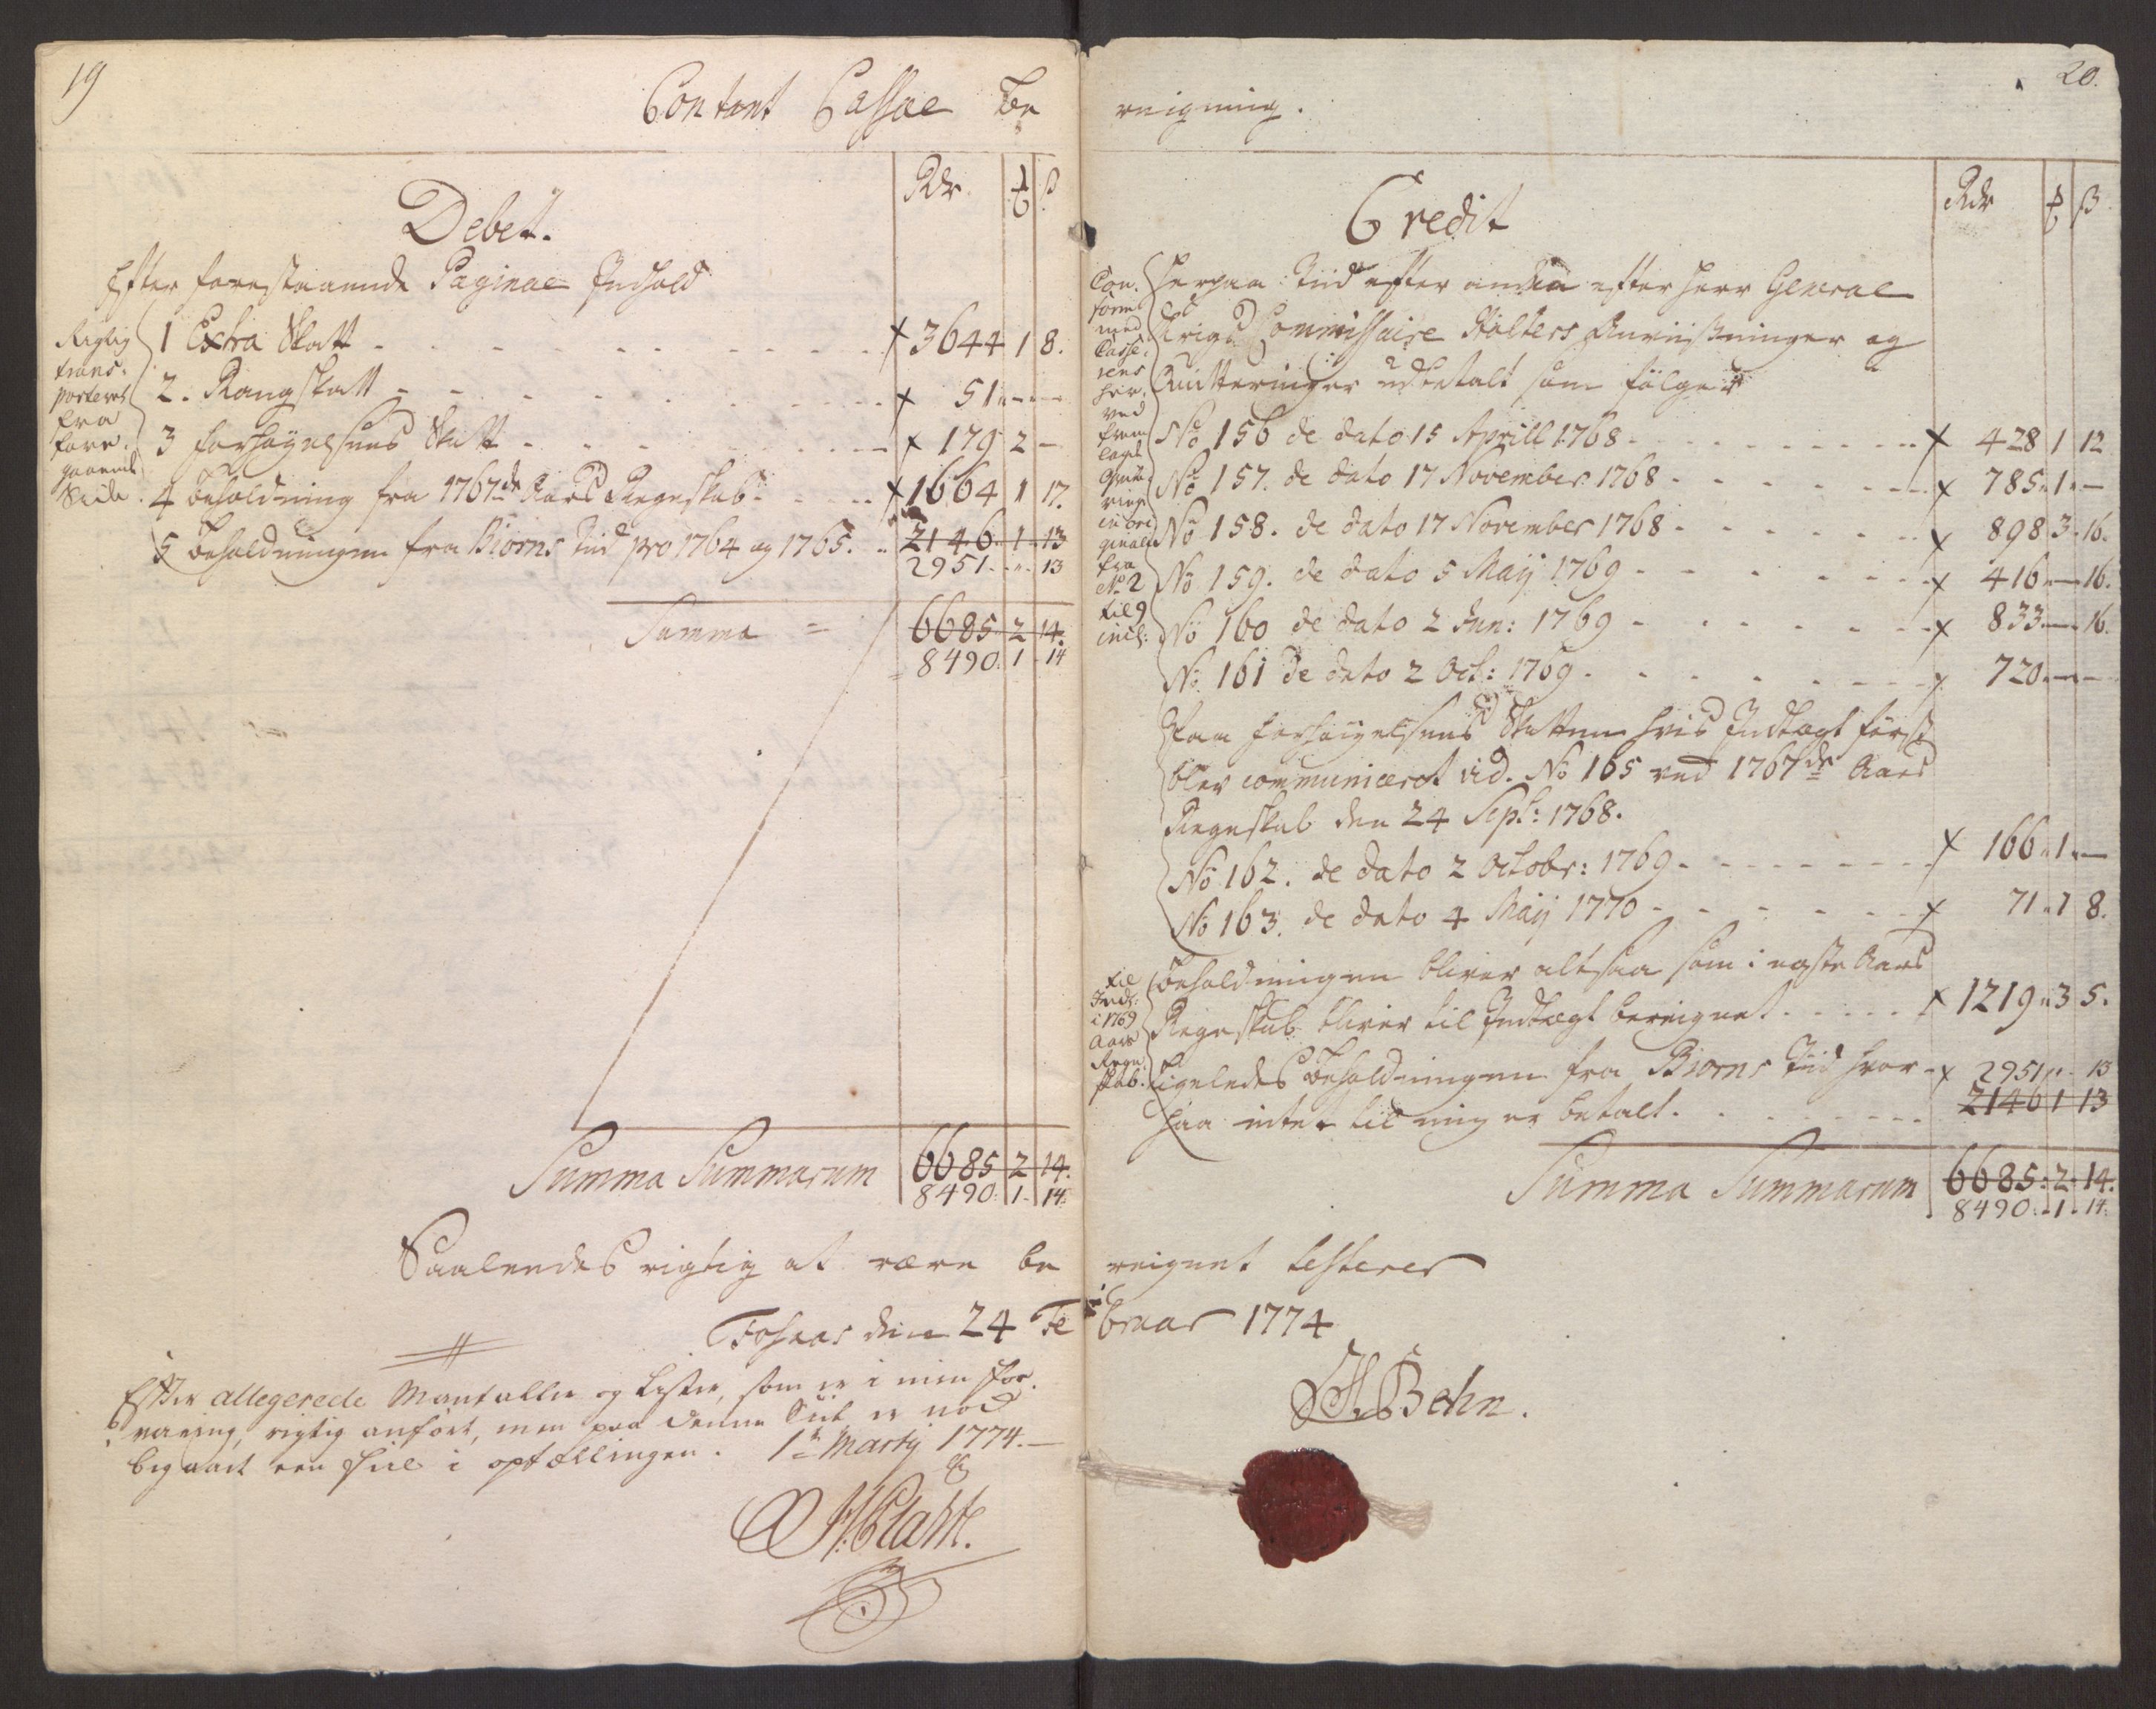 19
Contant Cassae be
Debet.
Rdr ß
Efter forestaaende Paginae Indhold
Rigtig
trans-
porteret
fra
fore-
gaaende
Side.
1 Extra Skatt - - - x 3644 1 8.
2. Rangskatt - - - x 51 - -
3 Forhøyelsens Skatt - - - x 179 2 -
4 Beholdning fra 1767de Aars Regnskab - - x 1664 1 17.
5 Beholdningen fra Biorns Tid pro 1764 og 1765. - 2146 1 13
2951 - 13
Summa = 6685 2 14.
= 8490. 1 - 14
Summa Summarum 6685 2 14.
8490. 1 - 14.
Saaledes rigtig at være be
Fossnes den 24 Fe
Efter allegerede Mantaller og Lister, som er i min for-
varing, rigtig anført, men paa denne Side er ved
begaaet een Fiel i optællingen. 1te Martij 1774.-
20.
reigning.
Credit
Rdr ß
Con-
form
med
Casse-
rens
her-
ved
frem
lagde
Qvitte-
ringer
in ori-
ginali
fra
No 2
til 9
incl:
Herpaa Tiid efter anden efter Herr General
Krigs Commissaire Holters Anviisninger og
Quitteringer udbetalt som følger
No 156 de dato 15 Aprill 1768 - - - x 428 1 12
No 157. de dato 17 November 1768 - - - x 785 1 -
No 158. de dato 17 November 1768 - - - x 898 3 16.
No 159. de dato 5 Maij 1769 - - - x 416 - 16.
No 160 de dato 2 Jun: 1769 - - - x 833 - 16.
No 161 de dato 2 Oct: 1769 - - - x 720 - -
Paa Forhøyelsens Skatten hvis Indtægt først
blev communiceret vid. No 165 ved 1767de Aars
Regnskab den 24 Sept: 1768.
No 162. de dato 2 Octobr: 1769 - - - x 166 1 -
No 163. de dato 4 Maij 1770 - - - x 71 1 8.
til
Indt:
i 1769
Aars
Regn-
skab.
Beholdningen bliver altsaa som i næste Aars
Regnskab bliver til Indtægt bereignet - - - x 1219 3 5.
Ligeledes Beholdningen fra Biorns Tid hvor- x 2951 - 13
paa intet til mig er betalt. - - - 2146 1 13
Summa Summarum 6685 2 14.
8490. 1 14.
reignet testerer
bruar 1774
Behn.